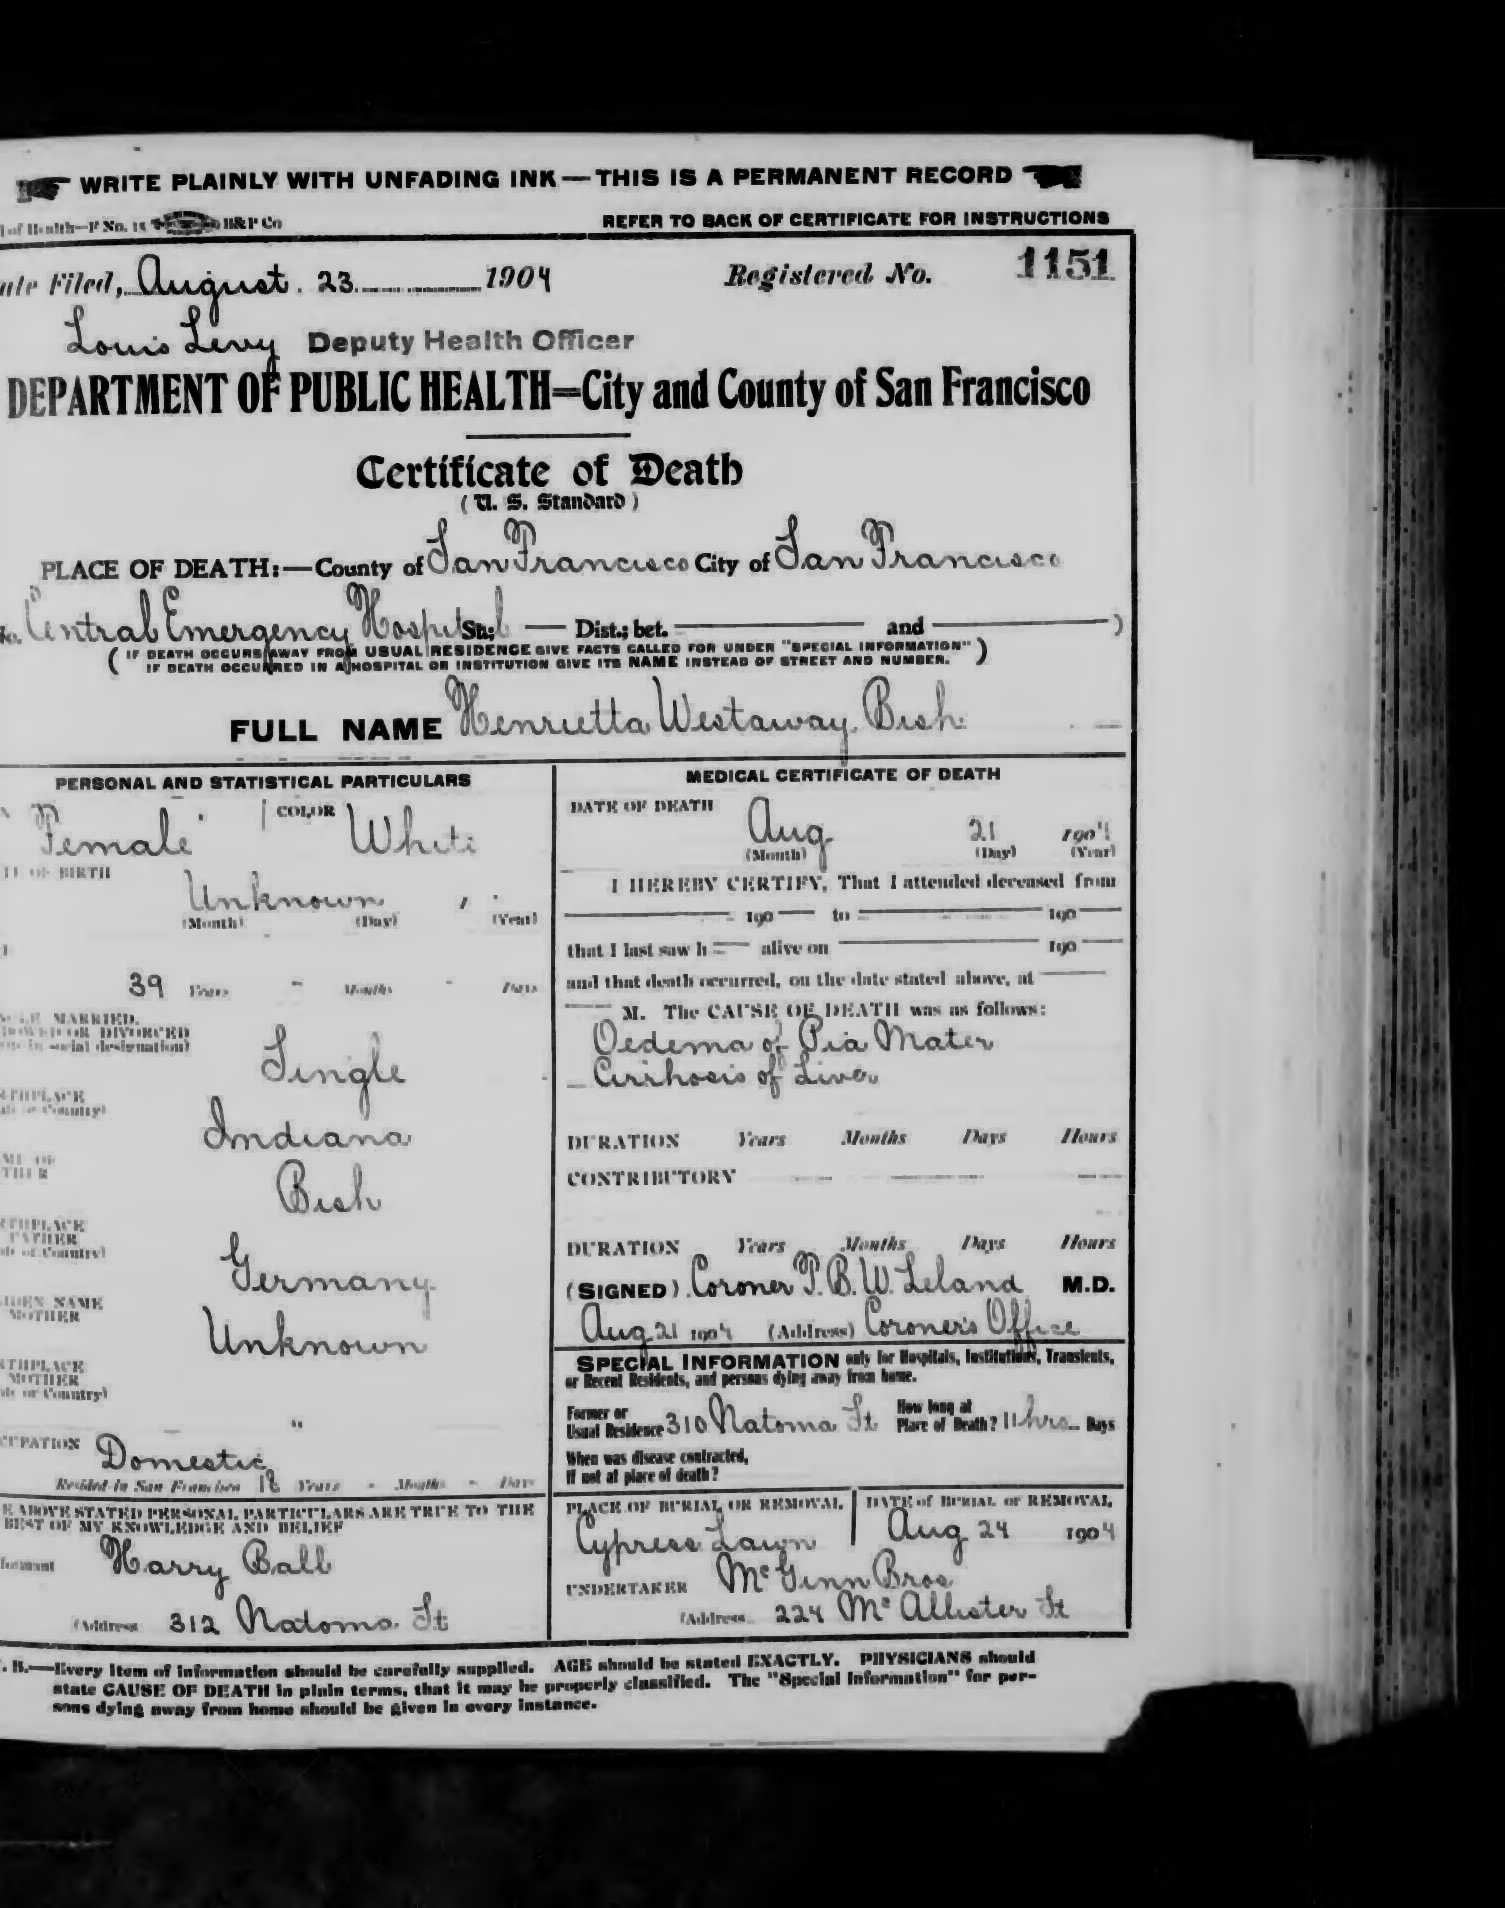 WRITE PLAINLY WITH UNFADING INK—THIS IS A PERMANENT RECORD
of Health—F No. 15 H&P Co REFER TO BACK OF CERTIFICATE FOR INSTRUCTIONS
ate Filed, August 23 1904 Registered No. 1151
Louis Levy Deputy Health Officer
DEPARTMENT OF PUBLIC HEALTH=City and County of San Francisco
Certificate of Death
(U. S. Standard)
PLACE OF DEATH:—County of San Francisco City of San Francisco
No. Central Emergency Hospital St.; — Dist.; bet. — and — )
( IF DEATH OCCURS AWAY FROM USUAL RESIDENCE GIVE FACTS CALLED FOR UNDER "SPECIAL INFORMATION" )
IF DEATH OCCURRED IN A HOSPITAL OR INSTITUTION GIVE ITS NAME INSTEAD OF STREET AND NUMBER.
FULL NAME Henrietta Westaway Bish
PERSONAL AND STATISTICAL PARTICULARS
Female COLOR White
TE OF BIRTH
Unknown
(Month) (Day) (Year)
39 Years - Months - Days
GLE MARRIED,
DOWED OR DIVORCED
ite in social designation)
Single
RTHPLACE
ate or Country)
Indiana
ME OF
THER
Bish
RTHPLACE
FATHER
ate or Country)
Germany
IDEN NAME
MOTHER
Unknown
RTHPLACE
MOTHER
ate or Country)
"
CUPATION Domestic
Resided in San Francisco 18 Years - Months - Days
E ABOVE STATED PERSONAL PARTICULARS ARE TRUE TO THE
BEST OF MY KNOWLEDGE AND BELIEF
formant Harry Ball
(Address 312 Natoma St
MEDICAL CERTIFICATE OF DEATH
DATE OF DEATH
Aug 21 1904
(Month) (Day) (Year)
I HEREBY CERTIFY, That I attended deceased from
— 190— to — 190—
that I last saw h— alive on — 190—
and that death occurred, on the date stated above, at —
— M. The CAUSE OF DEATH was as follows:
Oedema of Pia Mater
Cirrhosis of Liver
DURATION Years Months Days Hours
CONTRIBUTORY
DURATION Years Months Days Hours
(SIGNED) Coroner T. B. W. Leland M.D.
Aug 21 1904 (Address) Coroner's Office
SPECIAL INFORMATION only for Hospitals, Institutions, Transients,
or Recent Residents, and persons dying away from home.
Former or
Usual Residence 310 Natoma St
How long at
Place of Death? 11 hrs Days
When was disease contracted,
If not at place of death?
PLACE OF BURIAL OR REMOVAL DATE of BURIAL or REMOVAL
Cypress Lawn Aug 24 1904
UNDERTAKER McGinn Bros
(Address 224 McAllister St
. B.—Every item of information should be carefully supplied. AGE should be stated EXACTLY. PHYSICIANS should
state CAUSE OF DEATH in plain terms, that it may be properly classified. The "Special Information" for per-
sons dying away from home should be given in every instance.